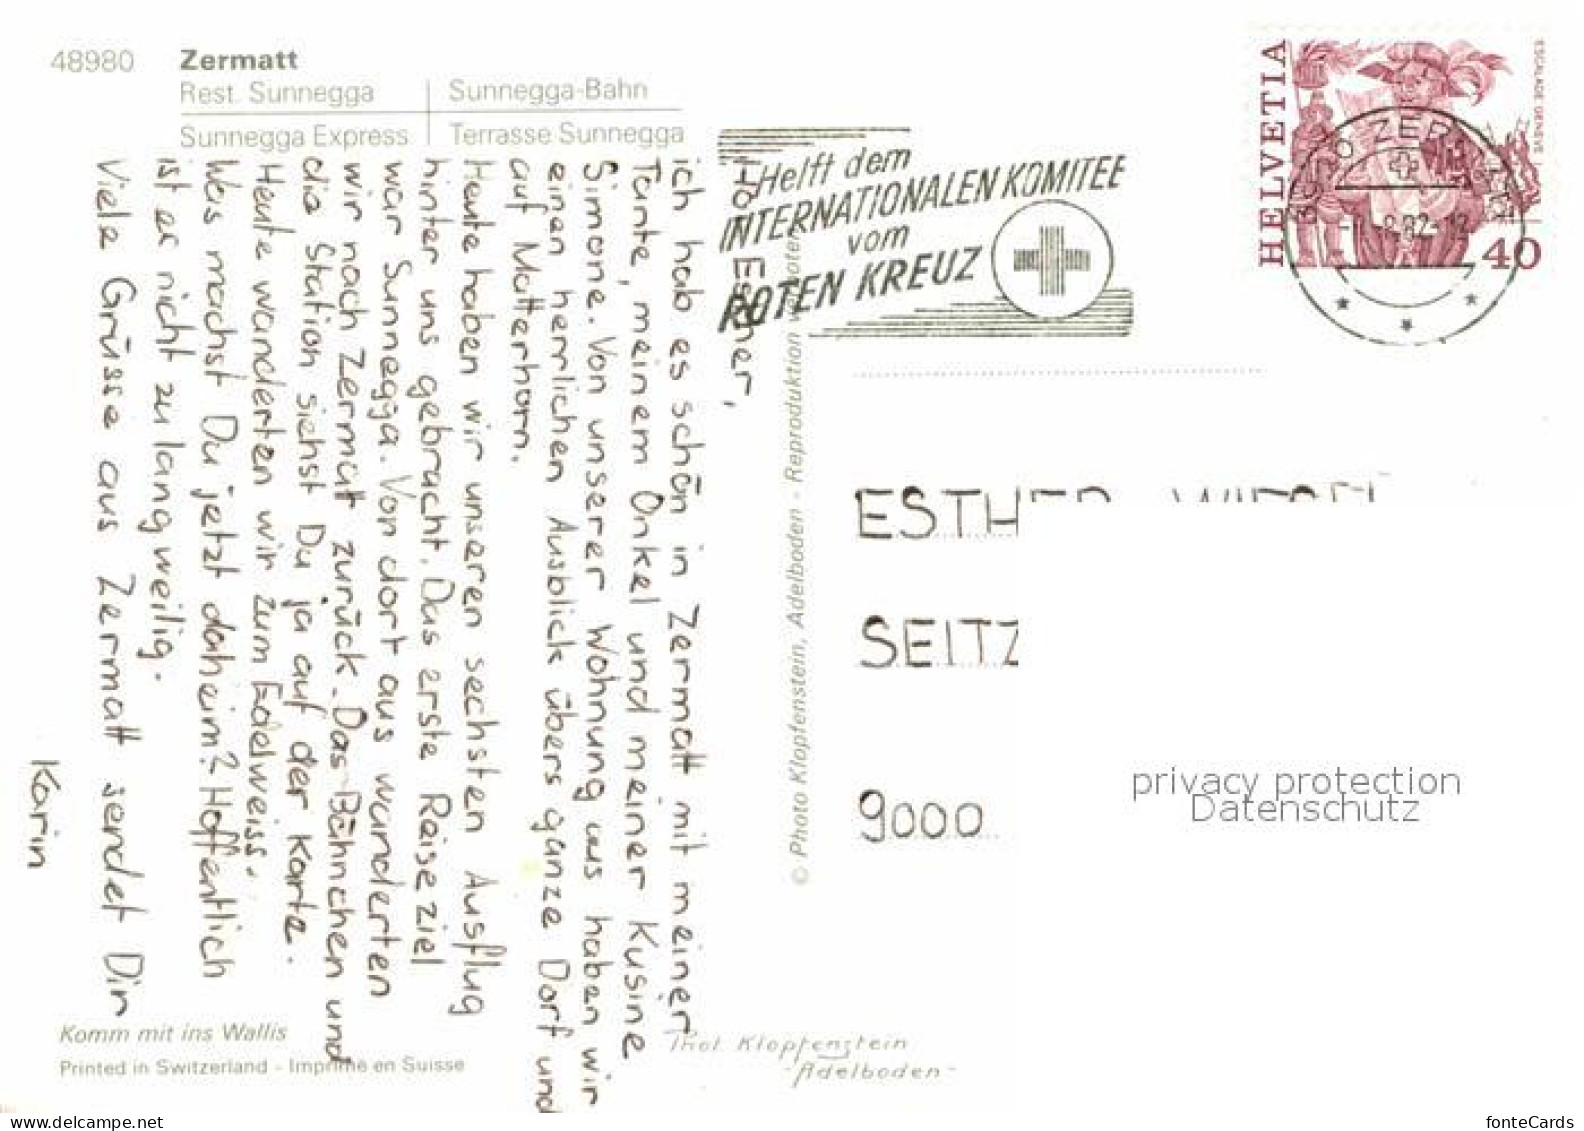 48980 Zermatt
Rest. Sunnegga | Sunnegga-Bahn
Sunnegga Express | Terrasse Sunnegga
Helft dem
INTERNATIONALEN KOMITEE
vom
ROTEN KREUZ
HELVETIA
ESCALADE GENÈVE
40
3920 ZERMATT
Hoi Esther,
ich hab es schön in Zermatt mit meiner
Tante, meinem Onkel und meiner Kusine
Simone. Von unserer Wohnung aus haben wir
einen herrlichen Ausblick übers ganze Dorf und
auf Matterhorn.
Heute haben wir unseren sechsten Ausflug
hinter uns gebracht. Das erste Reiseziel
war Sunnegga. Von dort aus wanderten
wir nach Zermatt zurück. Das Bähnchen und
die Station siehst Du ja auf der Karte.
Heute wanderten wir zum Edelweiss.
Was machst Du jetzt daheim? Hoffentlich
ist es nicht zu langweilig.
Viele Grüsse aus Zermatt sendet Dir
Karin
© Photo Klopfenstein, Adelboden - Reproduktion verboten
ESTHER
SEITZ
9000
privacy protection
Datenschutz
Komm mit ins Wallis
Printed in Switzerland - Imprimé en Suisse
Phot. Klopfenstein
- Adelboden -
www.delcampe.net
fonteCards